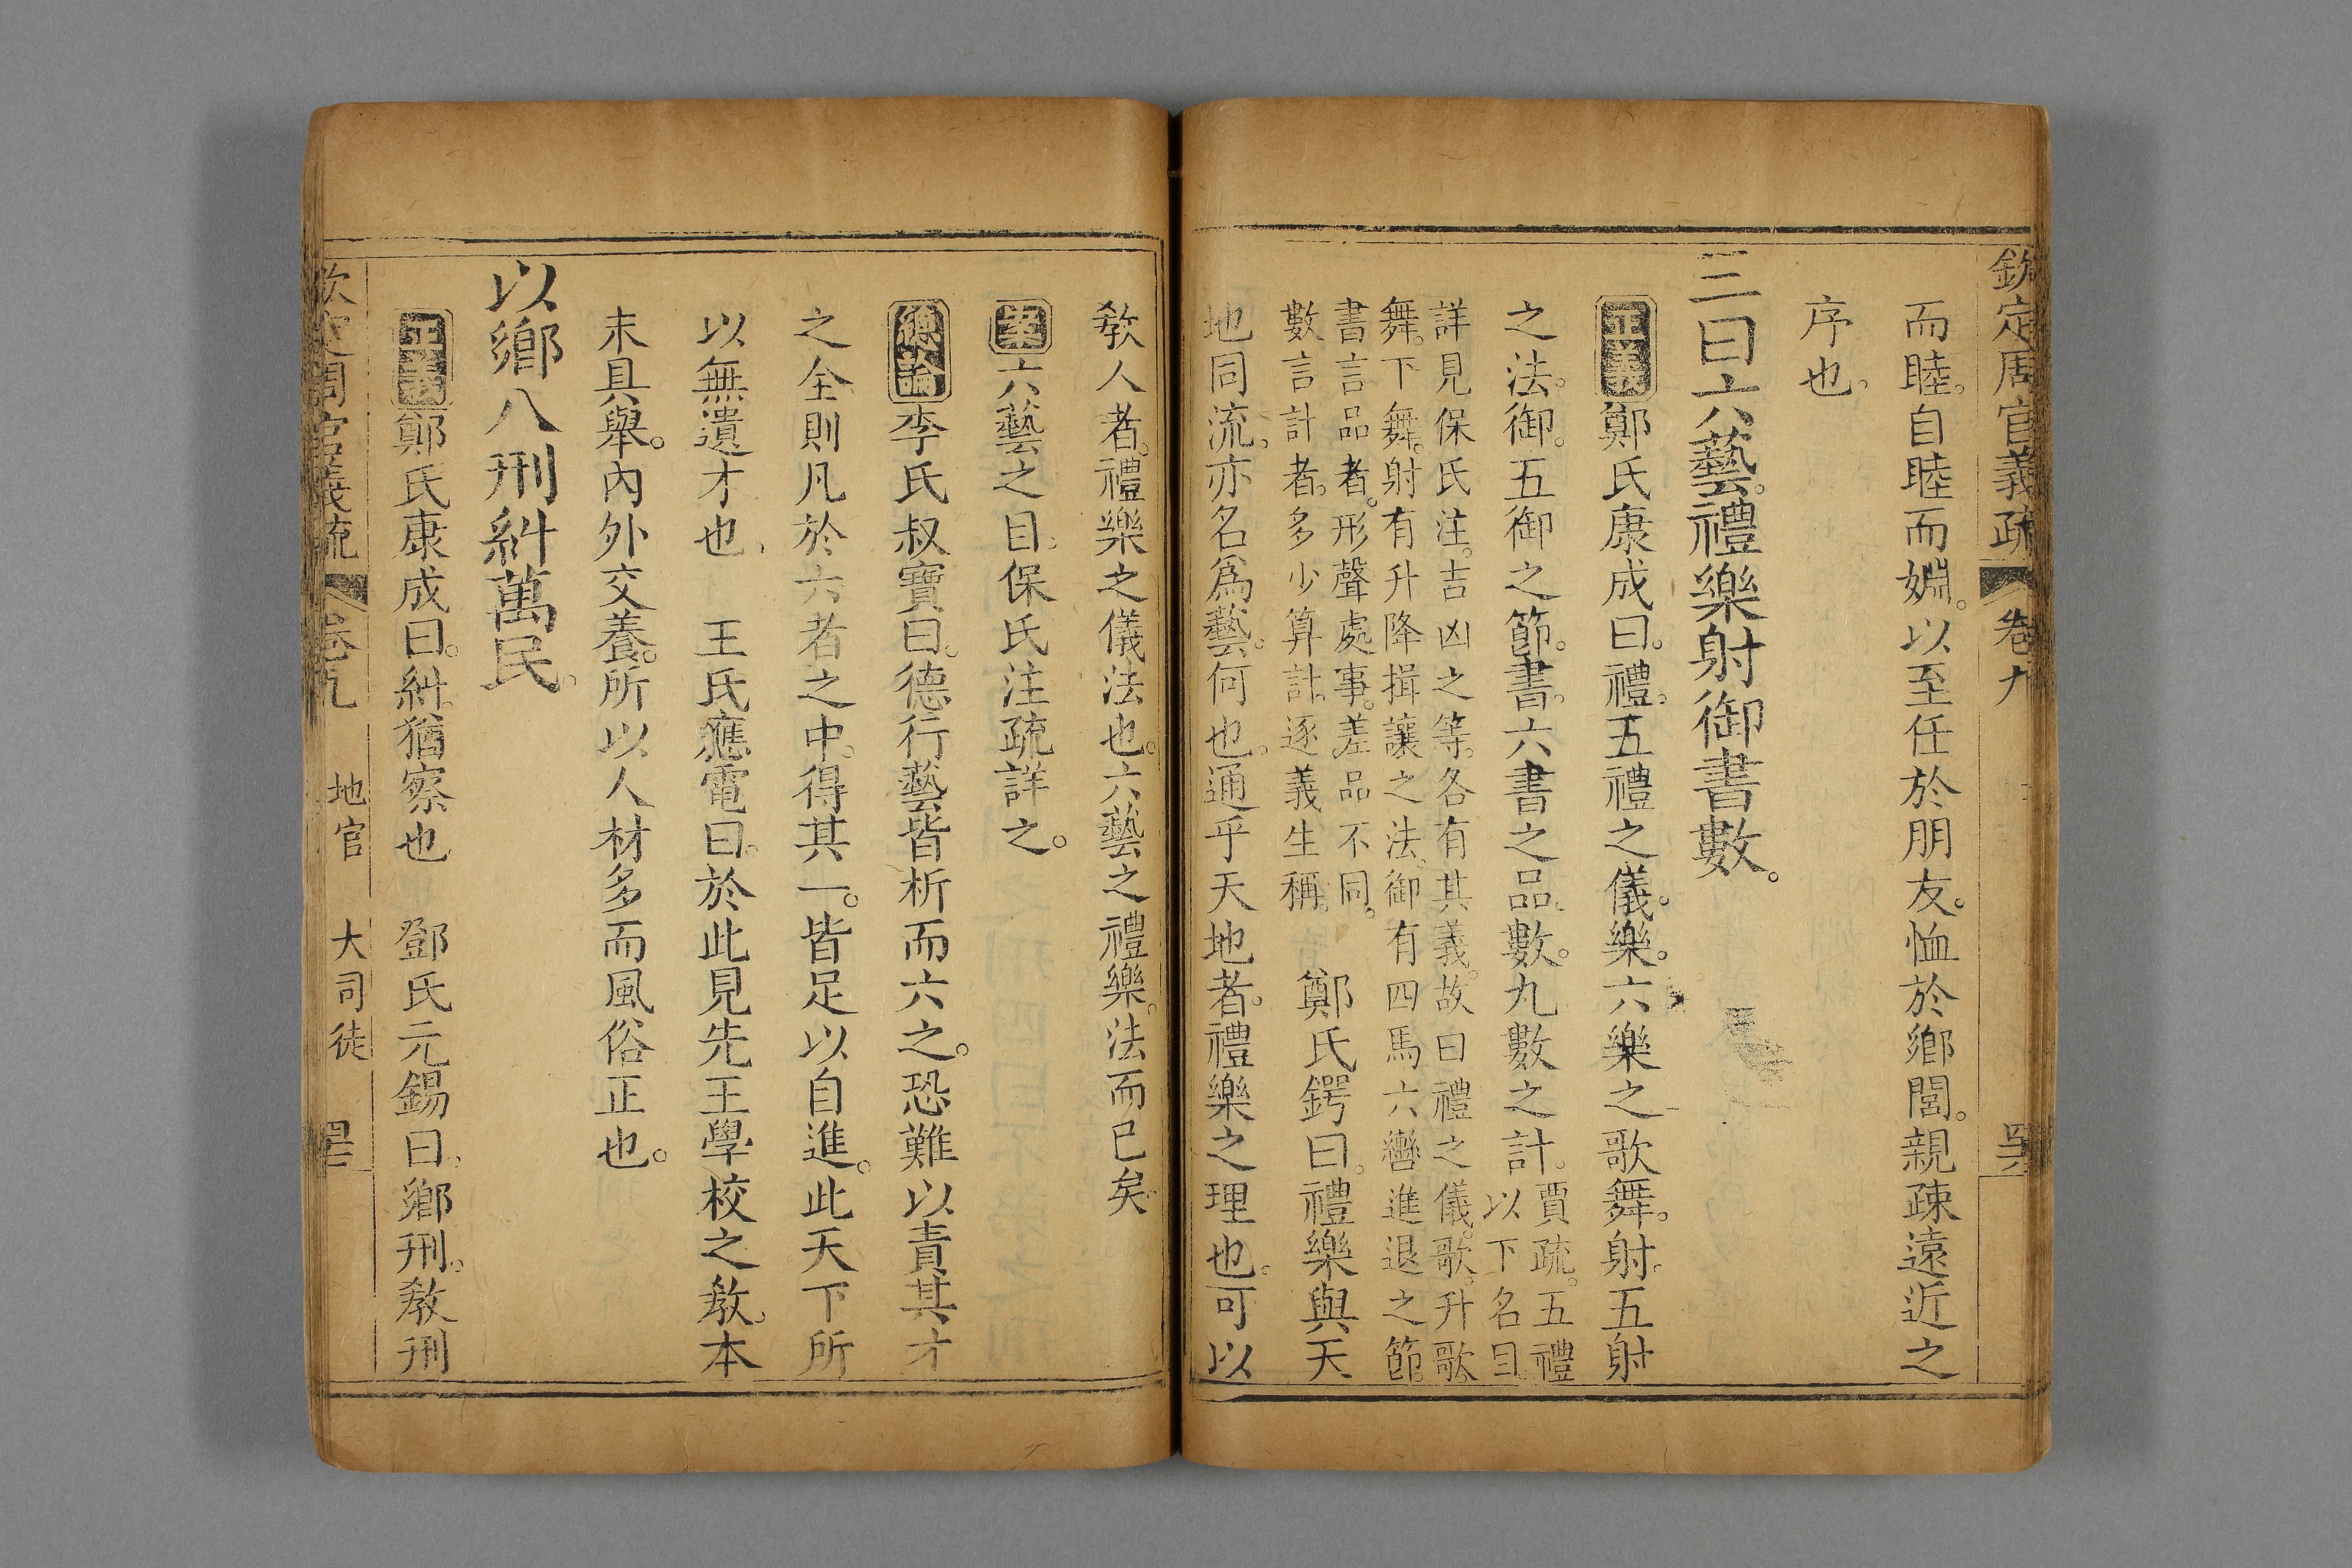 欽定周官義疏 卷九
而睦。自睦而婣。以至任於朋友。恤於鄉閭。親疎遠近之
序也。
三曰六藝。禮樂射御書數。
正義鄭氏康成曰。禮。五禮之儀。樂。六樂之歌舞。射。五射
之法。御。五御之節。書。六書之品。數。九數之計。賈疏。五禮
以下名目
詳見保氏注。吉凶之等。各有其義。故曰禮之儀。歌。升歌。
舞。下舞。射有升降揖讓之法。御有四馬六轡進退之節。
書言品者。形聲處事。差品不同。
數言計者。多少算計。逐義生稱。
鄭氏鍔曰。禮樂與天
地同流。亦名爲藝。何也。通乎天地者。禮樂之理也。可以
敎人者。禮樂之儀法也。六藝之禮樂。法而已矣。
六藝之目。保氏注疏詳之。
總論李氏叔寶曰。德行藝皆析而六之。恐難以責其才
之全。則凡於六者之中。得其一。皆足以自進。此天下所
以無遺才也。 王氏應電曰。於此見先王學校之敎。本
末具舉。內外交養。所以人材多而風俗正也。
以鄉八刑糾萬民。
正義鄭氏康成曰。糾。猶察也 鄧氏元錫曰。鄉刑。敎刑
欽定周官義疏 卷九 地官 大司徒